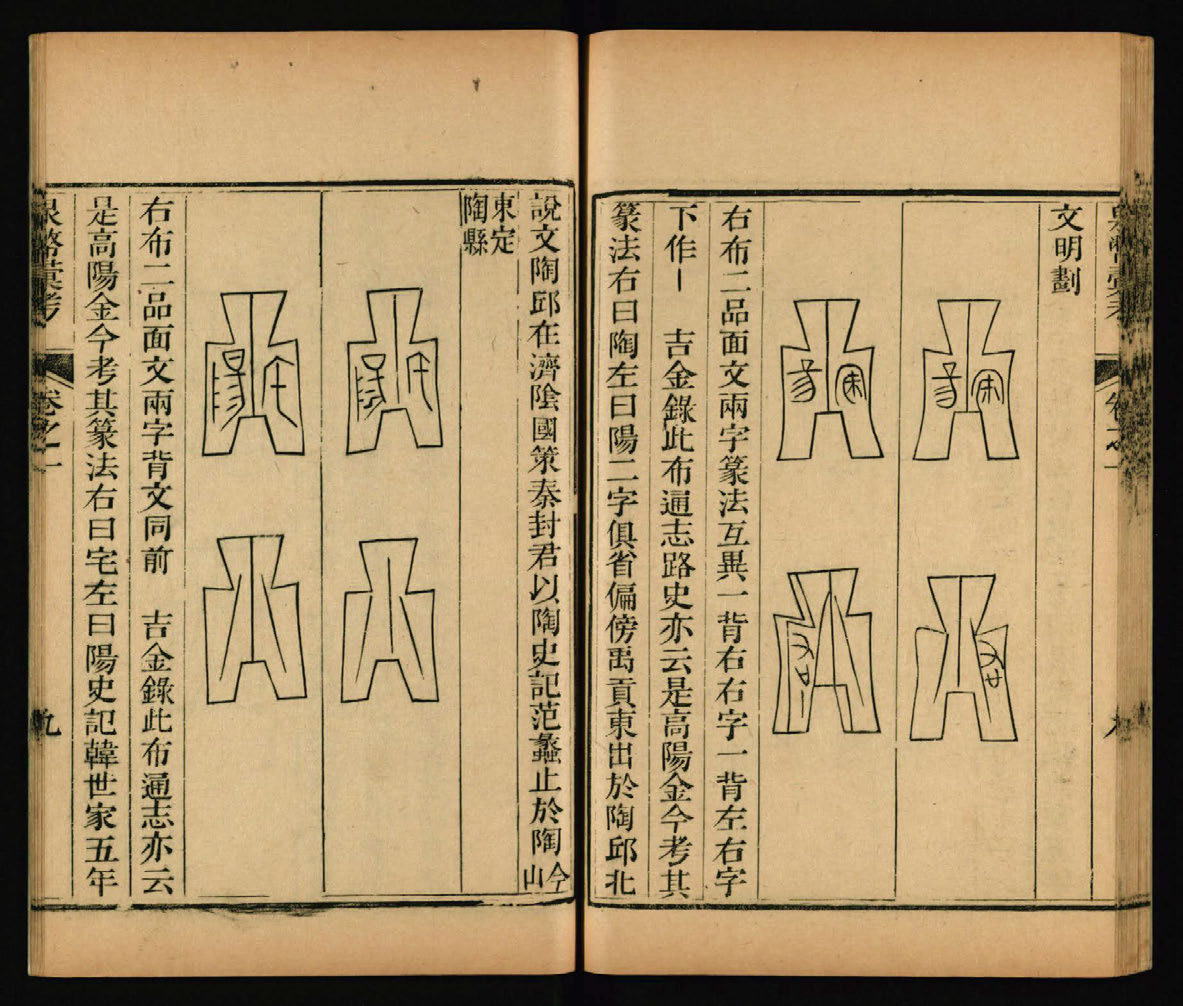 文明劃
右布二品面文兩字篆法互異一背右右字一背左右字
下作丨 吉金錄此布通志路史亦云是高陽金今考其
篆法右曰陶左曰陽二字俱省偏傍禹貢東出於陶邱北
說文陶邱在濟陰國策秦封君以陶史記范蠡止於陶今山
東定陶縣
右布二品面文兩字背文同前 吉金錄此布通志亦云
是高陽金今考其篆法右曰宅左曰陽史記韓世家五年
泉幣彙考 卷之一 九